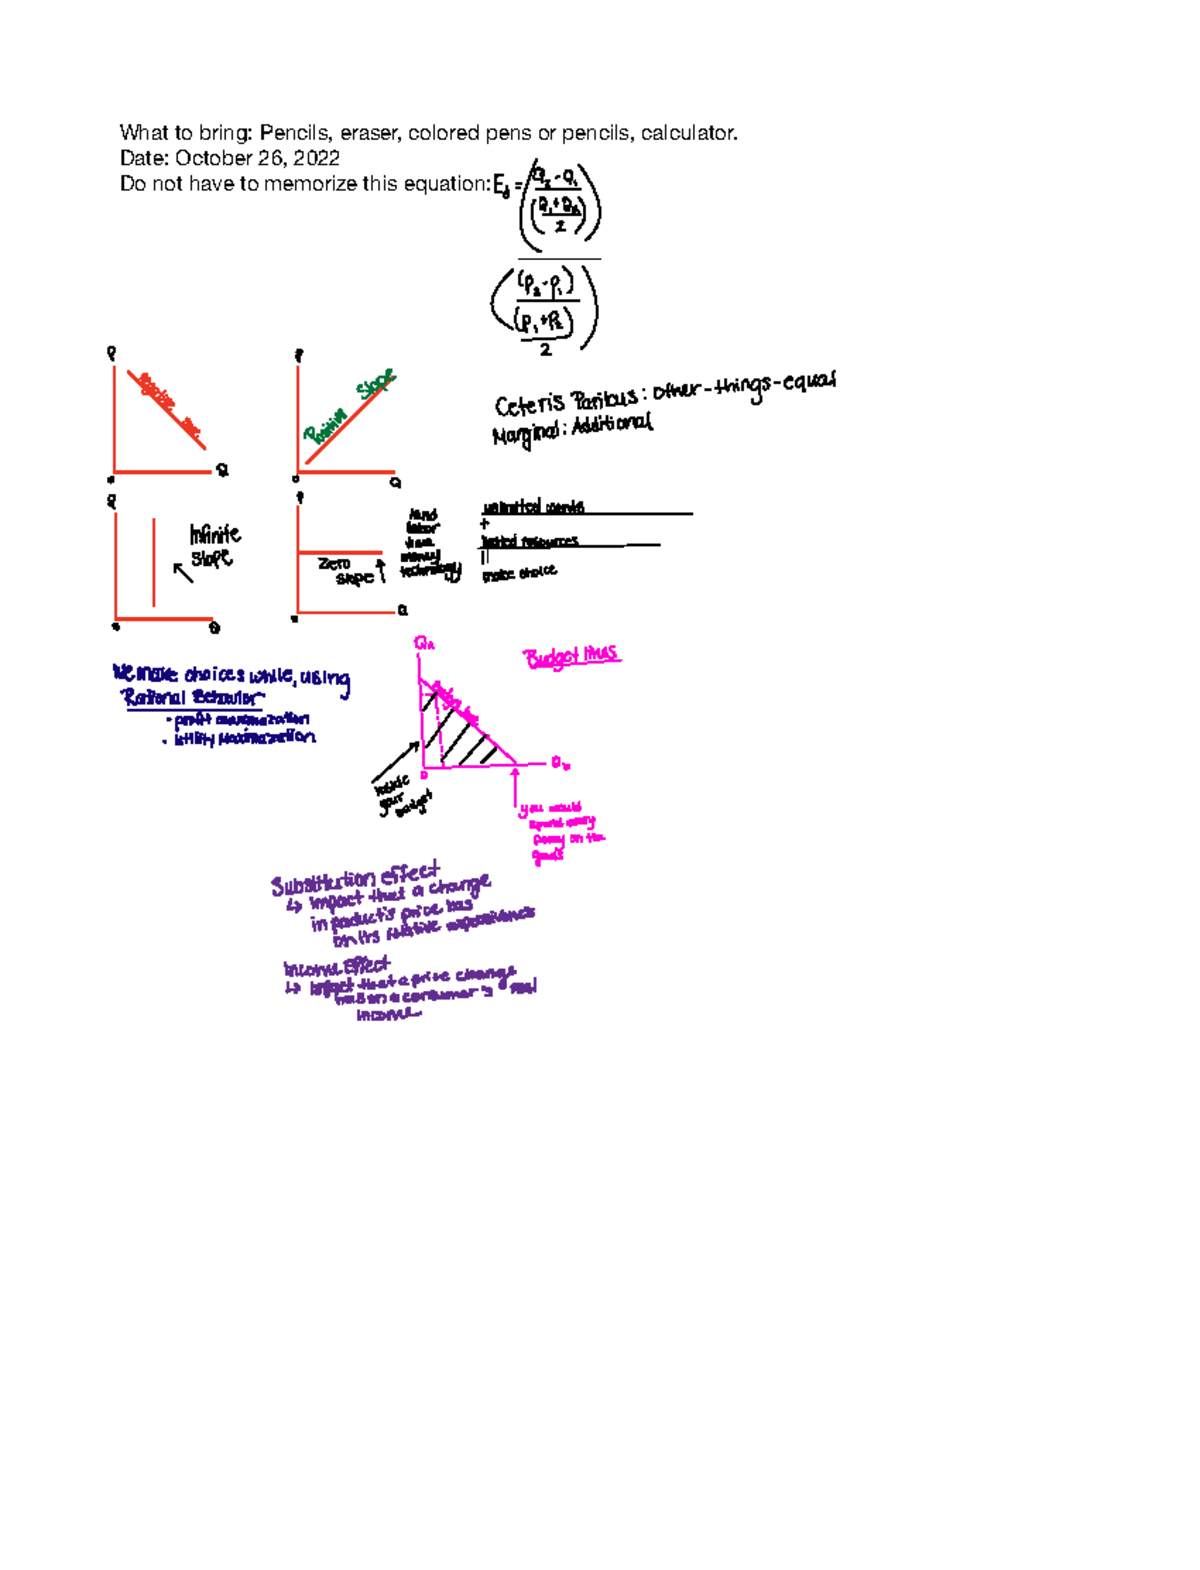 What to bring: Pencils, eraser, colored pens or pencils, calculator.
Date: October 26, 2022
Do not have to memorize this equation: E_d =
Q₂ - Q₁
(Q₁ + Q₂)
2
(P₂ - P₁)
(P₁ + P₂)
2
P
Q
Negative
P
Positive Slope
O
Q
Ceteris Paribus: other-things-equal
Marginal: Additional
Infinite
Slope
Q
P
Zero
slope
Q
land
labor
time
money
technology
unlimited wants
+
limited resources
||
make choice
We make choices while, using
Rational Behavior
• profit maximization
• utility maximization
Budget lines
Q_A
Q_B
O
inside
your
budget
you would
spend every
penny on the
goods
Substitution effect
↳ impact that a change
in product's price has
on its relative expensiveness
Income Effect
↳ impact that a price change
has on a consumer's real
income